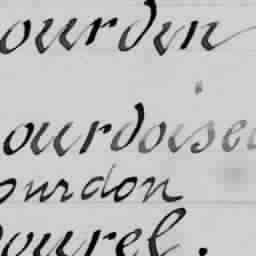 ourden
ourdoised
ourdon
ourel.